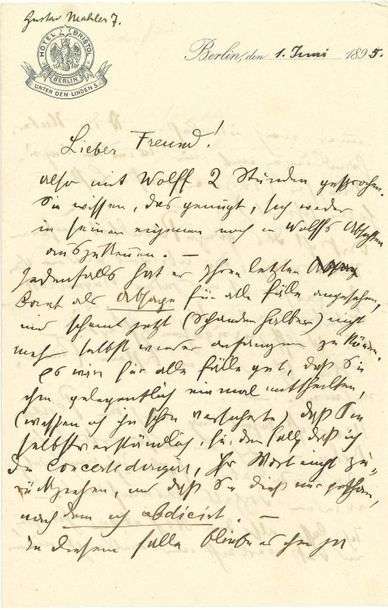 Gustav Mahler 7.
HÔTEL BRISTOL
BERLIN
UNTER DEN LINDEN 5
Berlin, den 1. Juni 1895.
Lieber Freund!
Also mit Wolff 2 Stunden gesprochen.
Sie wissen, das genügt, sich weder
in seinen eigenen noch in Wolffs Absichten
auszukennen. —
Jedenfalls hat er Ihren letzten
Brief als Absage für alle Fälle angesehen,
und scheint jetzt (Schanden halber) nicht
mehr selbst wieder anfangen zu können.
Es wäre für alle Fälle gut, daß Sie
ihm gelegentlich einmal mittheilten,
(wessen ich ihn schon versicherte) daß Sie
selbstverständlich, für den Fall, daß ich
die Concerte dirigire, Ihr Wort nicht zu-
rückziehen, und daß Sie dieß nur gethan,
nachdem ich abdicirt. —
In diesem Falle bliebe es bei